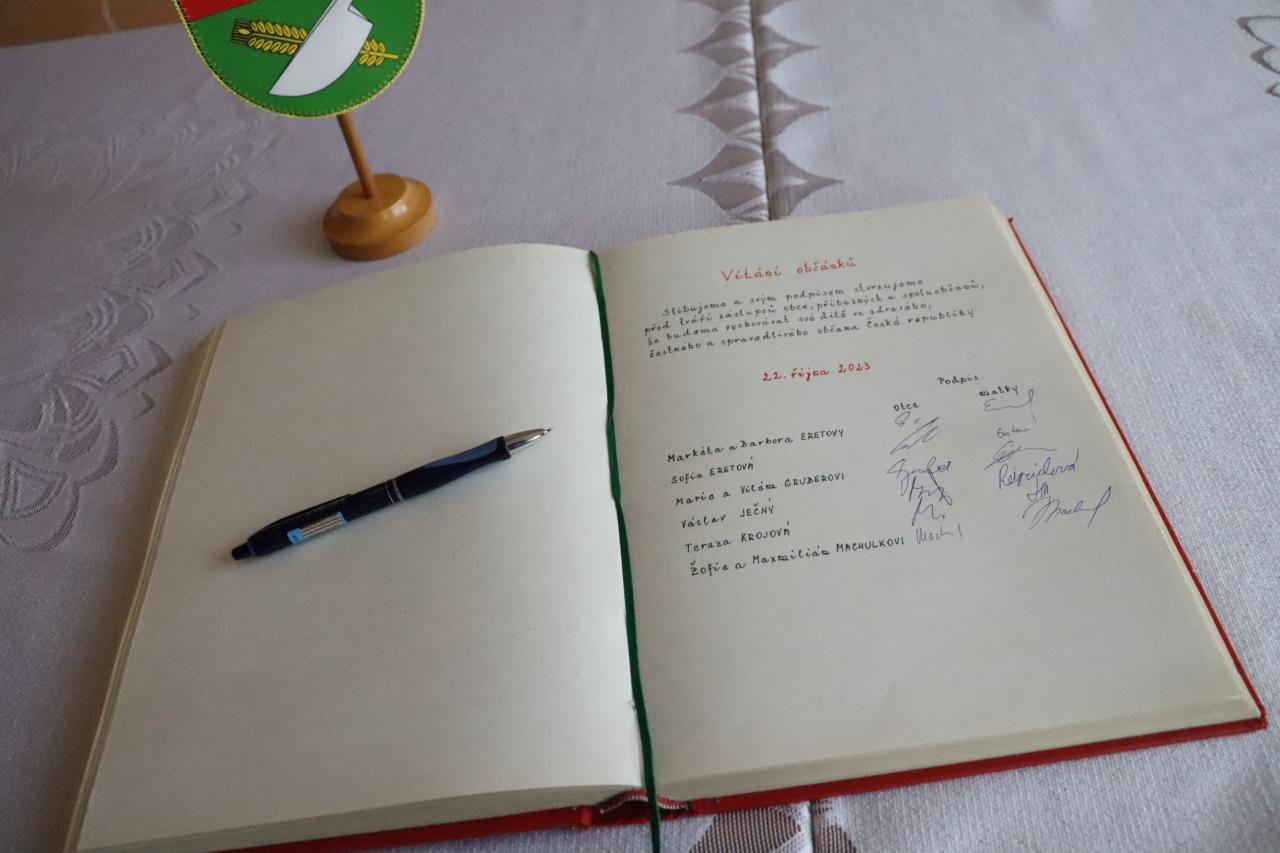 Vítání občánků
Slibujeme a svým podpisem stvrzujeme
před tváří zástupců obce, příbuzných a spoluobčanů,
že budeme vychovávat své dítě ve zdravého,
čestného a spravedlivého občana České republiky
22. října 2023
Podpis
otce matky
Markéta a Barbora ERETOVY
Sofie ERETOVÁ
Marie a Vilém GRUBEROVI
Václav JEČNÝ
Tereza KROJOVÁ
Žofie a Maxmilián MACHULKOVI